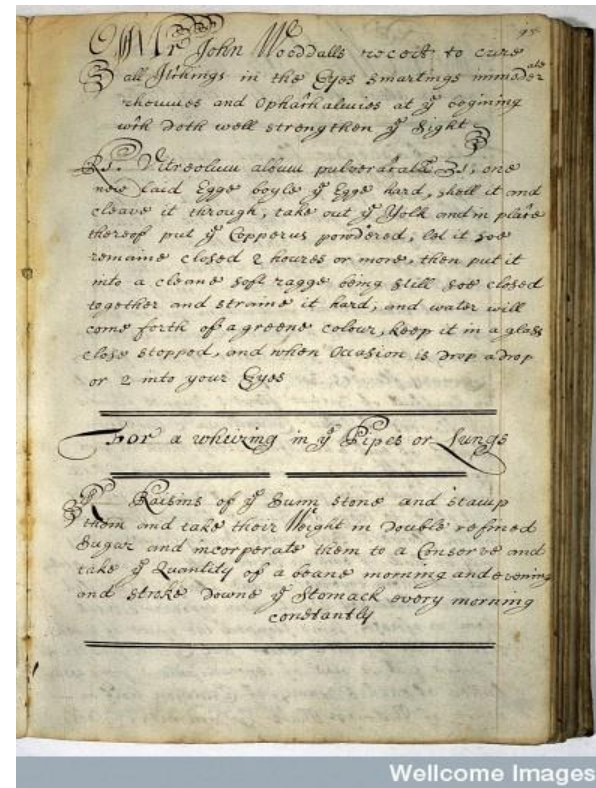 95
Mr John Wooddalls receit to cure
all Itchings in the Eyes smartings immoderate
rhewmes and Ophathalmies at ye begining
wch doth well strengthen ye Sight
Rs. Vitreolum album pulveratatae ℥s; one
new laid Egge boyle ye Egge hard, shell it and
cleave it through, take out ye Yolk and in place
thereof put ye Copperus powdered, let it soe
remaine closed 2 houres or more, then put it
into a cleane soft ragge being still soe closed
together and straine it hard, and water will
come forth of a greene colour, keep it in a glass
close stopped, and when Occasion is drop a drop
or 2 into your Eyes
For a wheizing in ye Pipes or Lungs
R Raisins of ye Sunn stone and stamp
them and take their Weight in Double refined
Sugar and incorperate them to a Conserve and
take ye Quantity of a beane morning and evening
and stroke Downe ye Stomack every morning
constantly
Wellcome Images